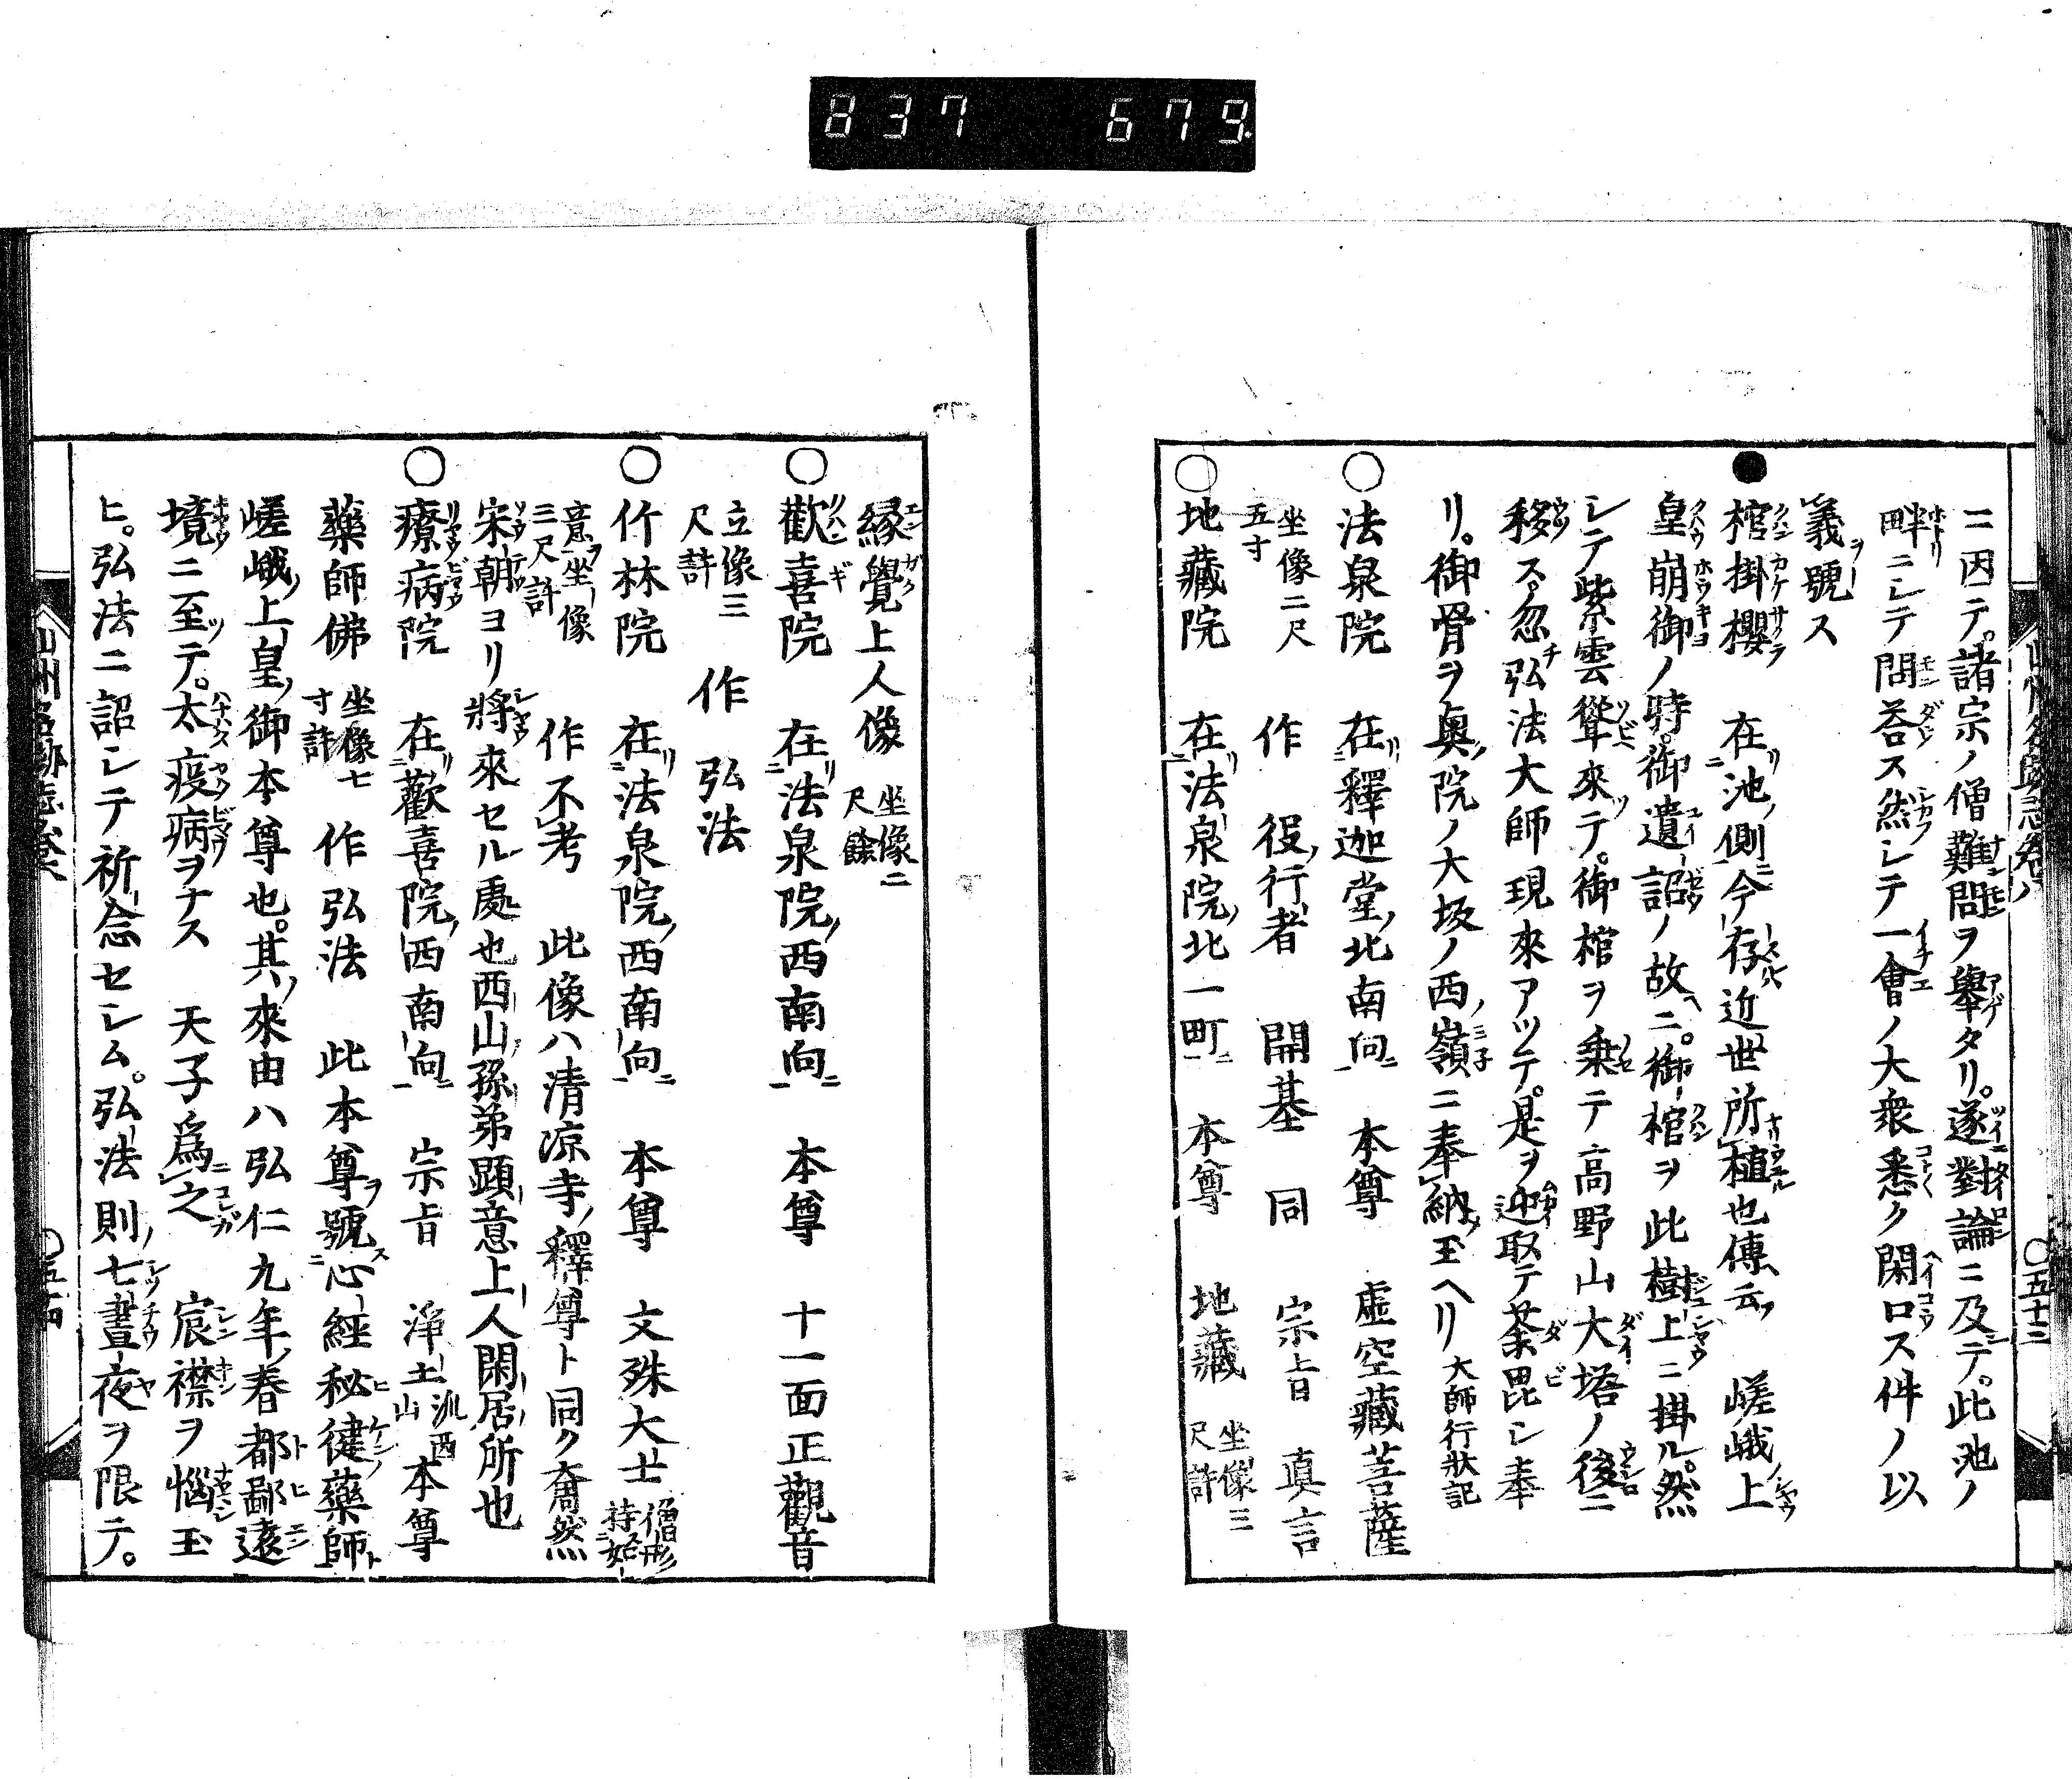 837 679
ニ因テ。諸宗ノ僧難問ヲ舉タリ。遂對論ニ及テ。此池ノ
畔ニシテ問荅ス然シテ一會ノ大衆悉ク閑口ス件ノ以
義號ス
●棺掛櫻 在池ノ側今存近世所植也傳云 嵯峨上
皇崩御ノ時。御遺詔ノ故ニ。御棺ヲ此樹上ニ掛ル。然
シテ紫雲聳來テ。御棺ヲ乗テ高野山大塔ノ後ニ
移ス。忽弘法大師現來アツテ。是ヲ迎取テ荼毘シ奉
リ。御骨ヲ奥院ノ大坂ノ西嶺ニ奉納玉ヘリ 大師行狀記
○法泉院 在釋迦堂ノ北南向 本尊 虚空藏菩薩
坐像二尺五寸 作 役行者 開基 同 宗旨 真言
○地藏院 在法泉院ノ北一町 本尊 地藏 坐像三尺許
縁覺上人像 坐像二尺餘
○歡喜院 在法泉院ノ西南向 本尊 十一面正觀音
立像三尺許 作 弘法
○竹林院 在法泉院ノ西南向 本尊 文殊大士 僧形持如
意坐像三尺許 作不考 此像ハ清凉寺ノ釋尊ト同ク奝然
宋朝ヨリ將來セル處也西山孫弟顕意上人閑居所也
○療病院 在歡喜院ノ西南向 宗旨 浄土 西山 本尊
藥師佛 坐像七寸許 作弘法 此本尊ヲ號心經秘徤藥師
嵯峨ノ上皇ノ御本尊也。其ノ來由ハ弘仁九年ノ春都鄙遠
境ニ至テ。太疫病ヲナス 天子為之 宸襟ヲ惱玉
ヒ。弘法ニ詔シテ祈念セシム。弘法則七晝夜ヲ限テ。